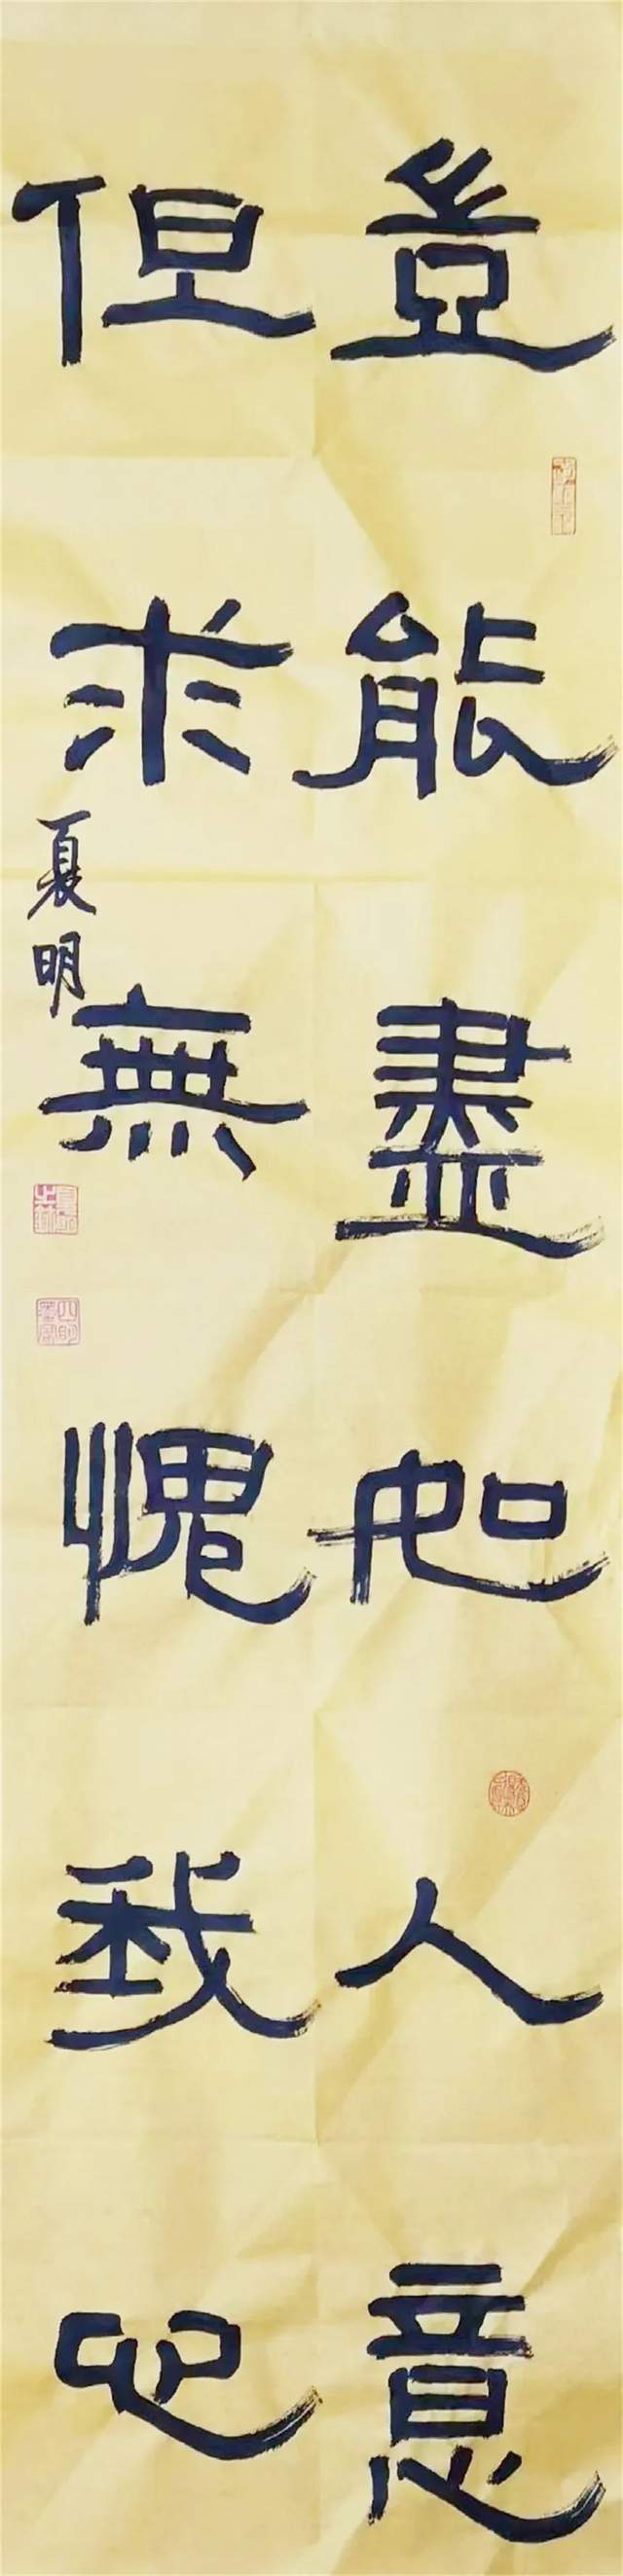 豈能盡如人意
但求無愧我心
夏明